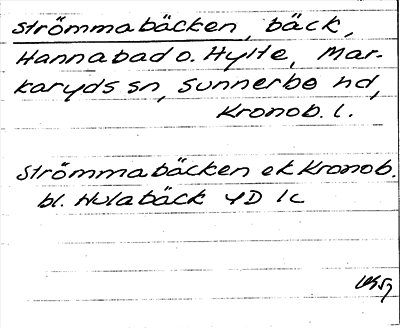 Strömmabäcken, bäck,
Hannabad o. Hylte, Mar-
karyds sn, Sunnerbo hd,
Kronob. l.
Strömmabäcken ek Kronob.
bl. Hulabäck 4D 1c